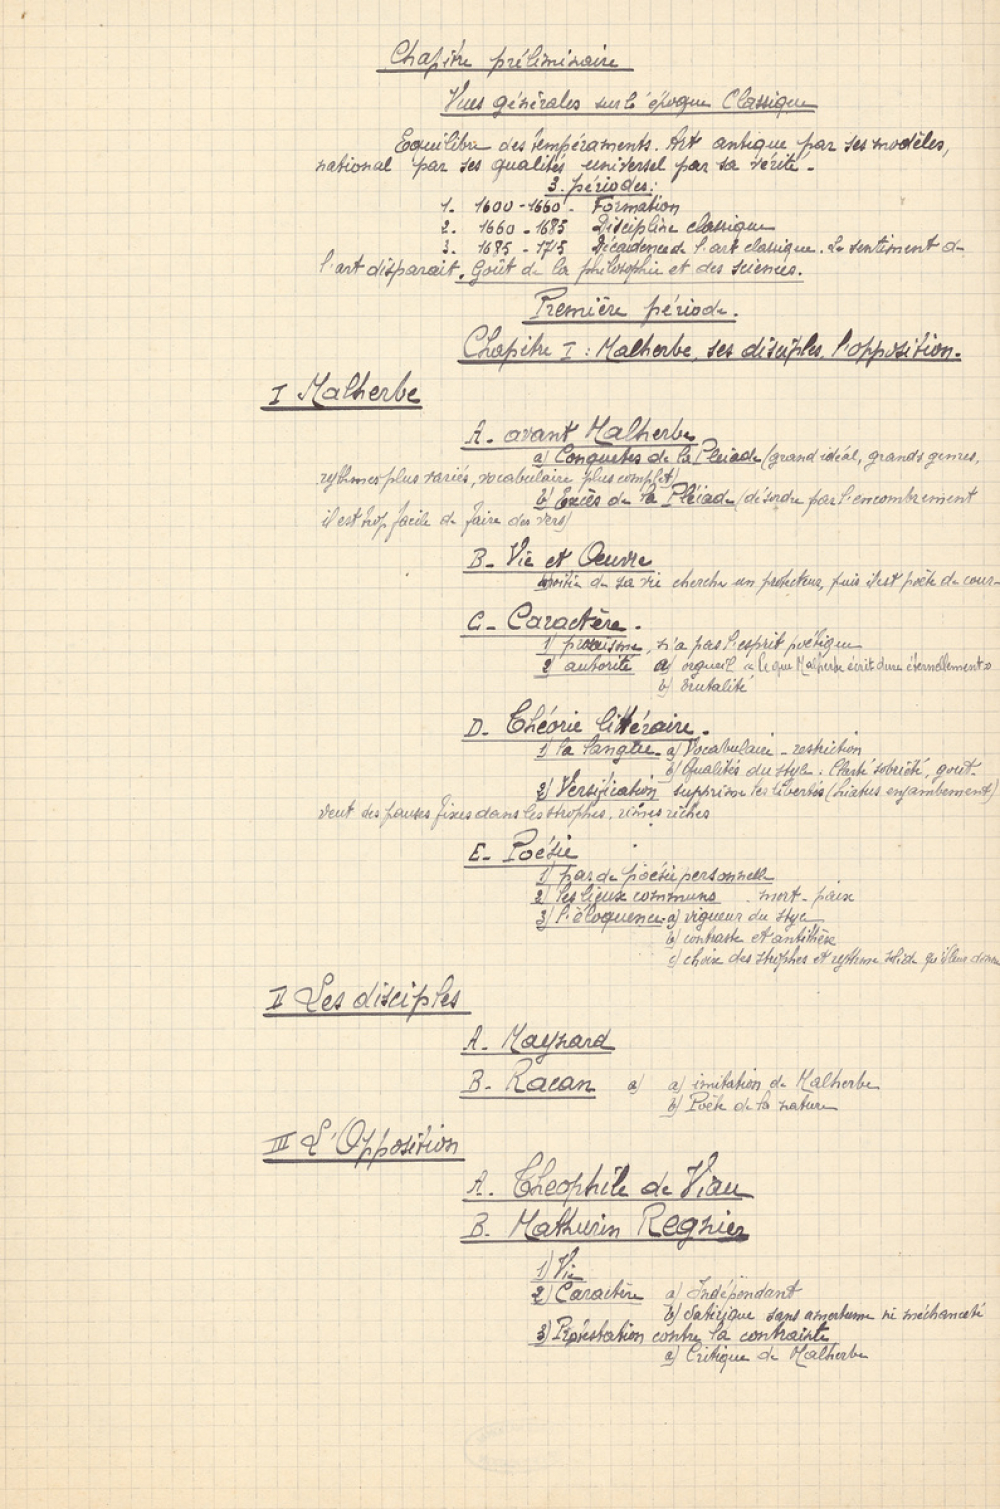 Chapitre préliminaire
Vues générales sur l'époque Classique
Equilibre des tempéraments. Art antique par ses modèles,
national par ses qualités universel par sa vérité.
3 périodes:
1. 1600-1660. Formation
2. 1660-1685 Discipline classique
3. 1685-1715 Décadence de l'art classique. Le sentiment de
l'art disparait. Goût de la philosophie et des sciences.
Première période.
Chapitre I: Malherbe, ses disciples, l'opposition.
I Malherbe
A. avant Malherbe
a) Conquetes de la Pleiade (grand idéal, grands genres,
rythmes plus variés, vocabulaire plus complet)
b) Excès de la Pléiade (désordre par l'encombrement
il est trop facile de faire des vers)
B. Vie et Oeuvre
moitié de sa vie cherche un protecteur, puis il est poète de cour-
C. Caractère.
1) prosaisme, n'a pas l'esprit poétique
2) autorité a) orgueil « Ce que Malherbe écrit dure éternellement »
b) brutalité
D. Théorie littéraire.
1) la langue. a) Vocabulaire - restriction
b) Qualités du style: Clarté sobriété, gout.
2) Versification supprime les libertés (hiatus enjambement)
veut des pauses fixes dans les strophes, rimes riches
E. Poésie
1) pas de poésie personnelle
2) les lieux communs mort - paix
3) l'éloquence: a) vigueur du style
b) contraste et antithèse
c) choix des strophes et rythme solide qu'il leur
II Les disciples
A. Maynard
B. Racan a) a) imitation de Malherbe
b) Poète de la nature
III L'Opposition
A. Theophile de Viau
B. Mathurin Regnier
1) Vie
2) Caractère a) Indépendant
b) Satirique sans amertume ni méchanceté
3) Protestation contre la contrainte
a) Critique de Malherbe